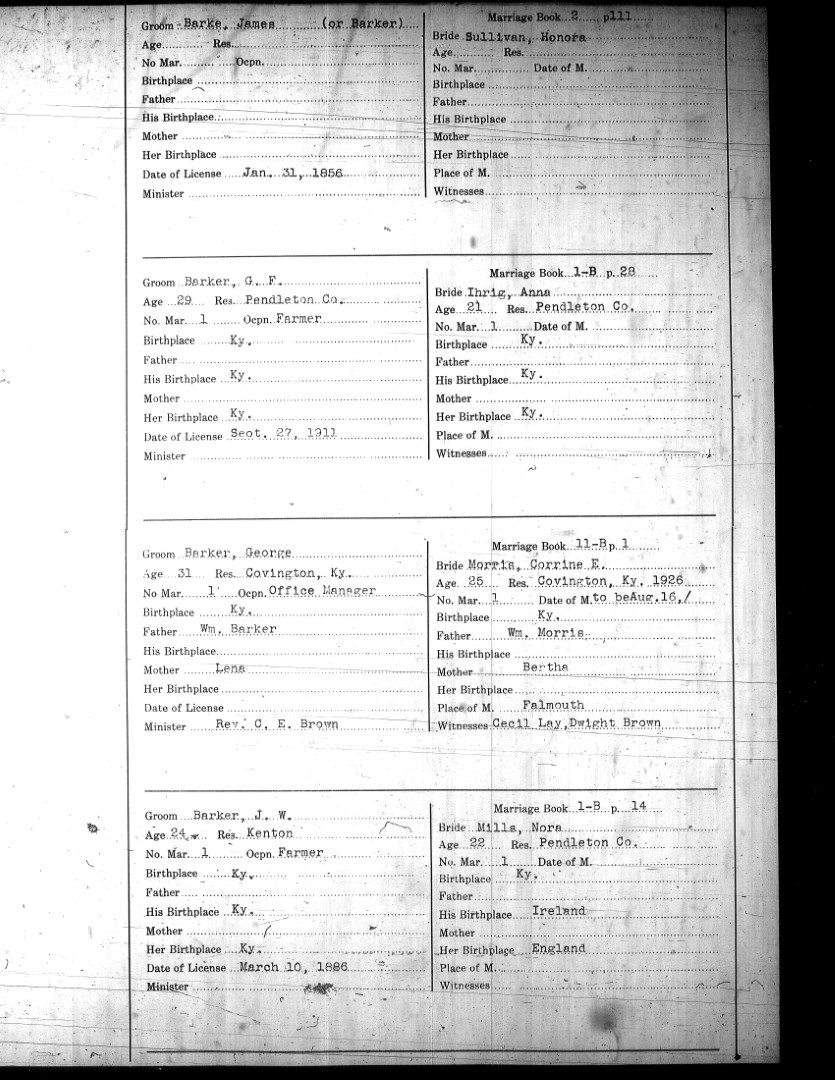 Groom Barke, James (or Barker)
Age Res.
No Mar. Ocpn.
Birthplace
Father
His Birthplace
Mother
Her Birthplace
Date of License Jan. 31, 1856
Minister
Marriage Book 2 p111
Bride Sullivan, Honora
Age Res.
No. Mar. Date of M.
Birthplace
Father
His Birthplace
Mother
Her Birthplace
Place of M.
Witnesses
Groom Barker, G. F.
Age 29 Res. Pendleton Co.
No. Mar. 1 Ocpn. Farmer
Birthplace Ky.
Father
His Birthplace Ky.
Mother
Her Birthplace Ky.
Date of License Sept. 27, 1911
Minister
Marriage Book 1-B p. 28
Bride Ihrig, Anna
Age 21 Res. Pendleton Co.
No. Mar. 1 Date of M.
Birthplace Ky.
Father
His Birthplace Ky.
Mother
Her Birthplace Ky.
Place of M.
Witnesses
Groom Barker, George
Age 31 Res. Covington, Ky.
No Mar. 1 Ocpn. Office Manager
Birthplace Ky.
Father Wm. Barker
His Birthplace
Mother Lena
Her Birthplace
Date of License
Minister Rev. C. E. Brown
Marriage Book 11-B p. 1
Bride Morris, Corrine E.
Age 25 Res. Covington, Ky. 1926
No. Mar. 1 Date of M. to be Aug. 16, /
Birthplace Ky.
Father Wm. Morris
His Birthplace
Mother Bertha
Her Birthplace
Place of M. Falmouth
Witnesses Cecil Lay, Dwight Brown
Groom Barker, J. W.
Age 24 Res. Kenton
No. Mar. 1 Ocpn. Farmer
Birthplace Ky.
Father
His Birthplace Ky.
Mother
Her Birthplace Ky.
Date of License March 10, 1886
Minister
Marriage Book 1-B p. 14
Bride Mills, Nora
Age 22 Res. Pendleton Co.
No. Mar. 1 Date of M.
Birthplace Ky.
Father
His Birthplace Ireland
Mother
Her Birthplace England
Place of M.
Witnesses